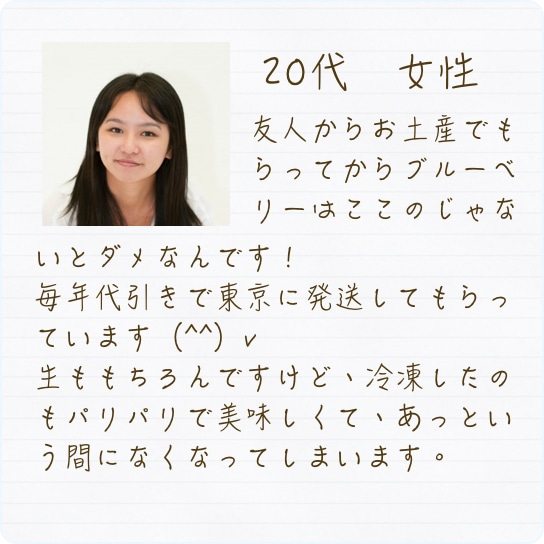 20代　女性
友人からお土産でも
らってからブルーベ
リーはここのじゃな
いとダメなんです！
毎年代引きで東京に発送してもらっ
ています (^^) v
生ももちろんですけど、冷凍したの
もパリパリで美味しくて、あっとい
う間になくなってしまいます。